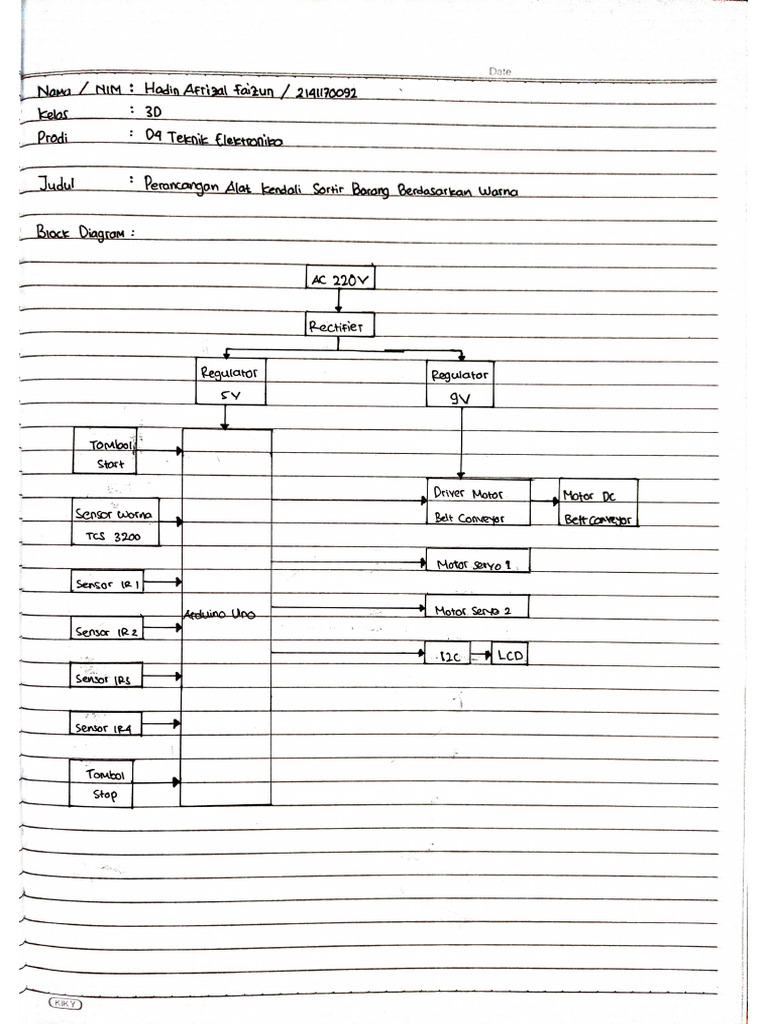 Date
Nama / NIM : Hadin Afrizal Faizun / 2141170092
Kelas : 3D
Prodi : D4 Teknik Elektronika
Judul : Perancangan Alat Kendali Sortir Barang Berdasarkan Warna
Block Diagram :
AC 220V
Rectifier
Regulator
5V
Regulator
9V
Tombol
Start
Sensor Warna
TCS 3200
Sensor IR1
Sensor IR2
Sensor IR3
Sensor IR4
Tombol
Stop
Arduino Uno
Driver Motor
Belt Conveyor
Motor DC
Belt Conveyor
Motor Servo 1
Motor Servo 2
I2C
LCD
KIKY